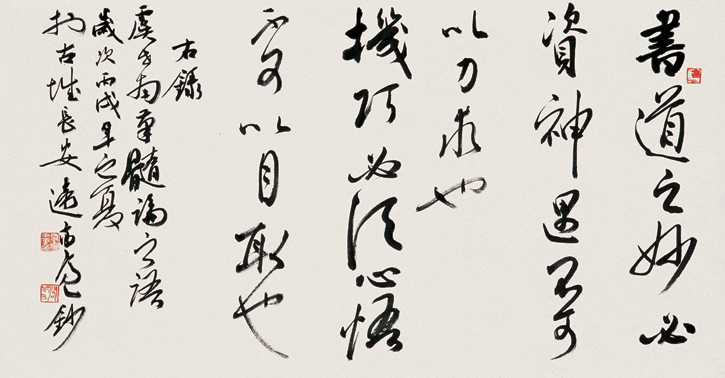 書道之妙必
資神遇不可
以力求也
機巧必須心悟
不可以目取也
右錄
虞世南筆髓論之語
歲次丙戌年之夏
於古城長安遠鈔